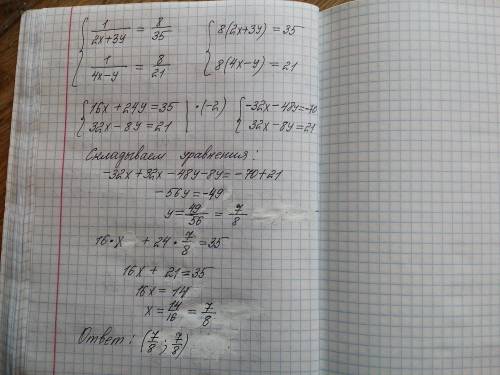 { 1/(2x+3y) = 8/35   { 8(2x+3y) = 35
{ 1/(4x-y) = 8/21   { 8(4x-y) = 21
{ 16x + 24y = 35 | ·(-2)   { -32x - 48y = -70
{ 32x - 8y = 21   { 32x - 8y = 21
Складываем уравнения:
-32x + 32x - 48y - 8y = -70 + 21
-56y = -49
y = 49/56 = 7/8
16·x + 24·7/8 = 35
16x + 21 = 35
16x = 14
x = 14/16 = 7/8
Ответ: (7/8; 7/8)